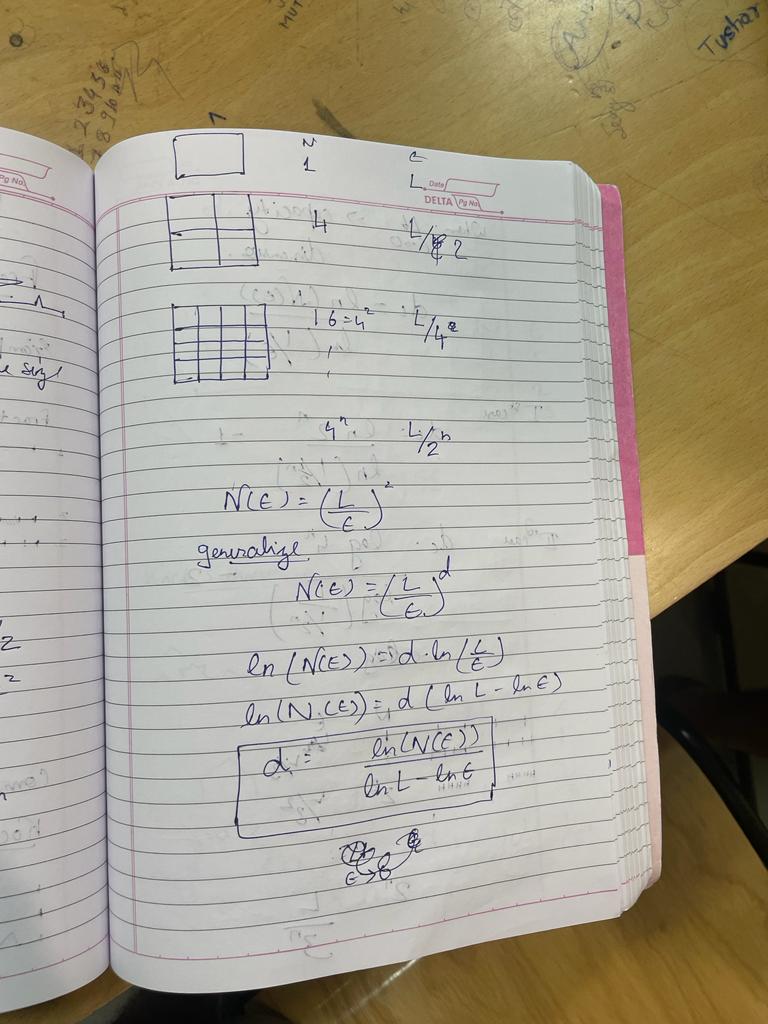 Tushar
MUT
23456
78910
1
Pg No.
N ε
1 L
Date
DELTA Pg No.
4 L/2
16=4² L/4
e size
4ⁿ L/2ⁿ
N(ε) = (L/ε)²
generalize
N(ε) = (L/ε)^d
ln(N(ε)) = d·ln(L/ε)
ln(N(ε)) = d(ln L - ln ε)
d = ln(N(ε)) / (ln L - ln ε)
ε→0